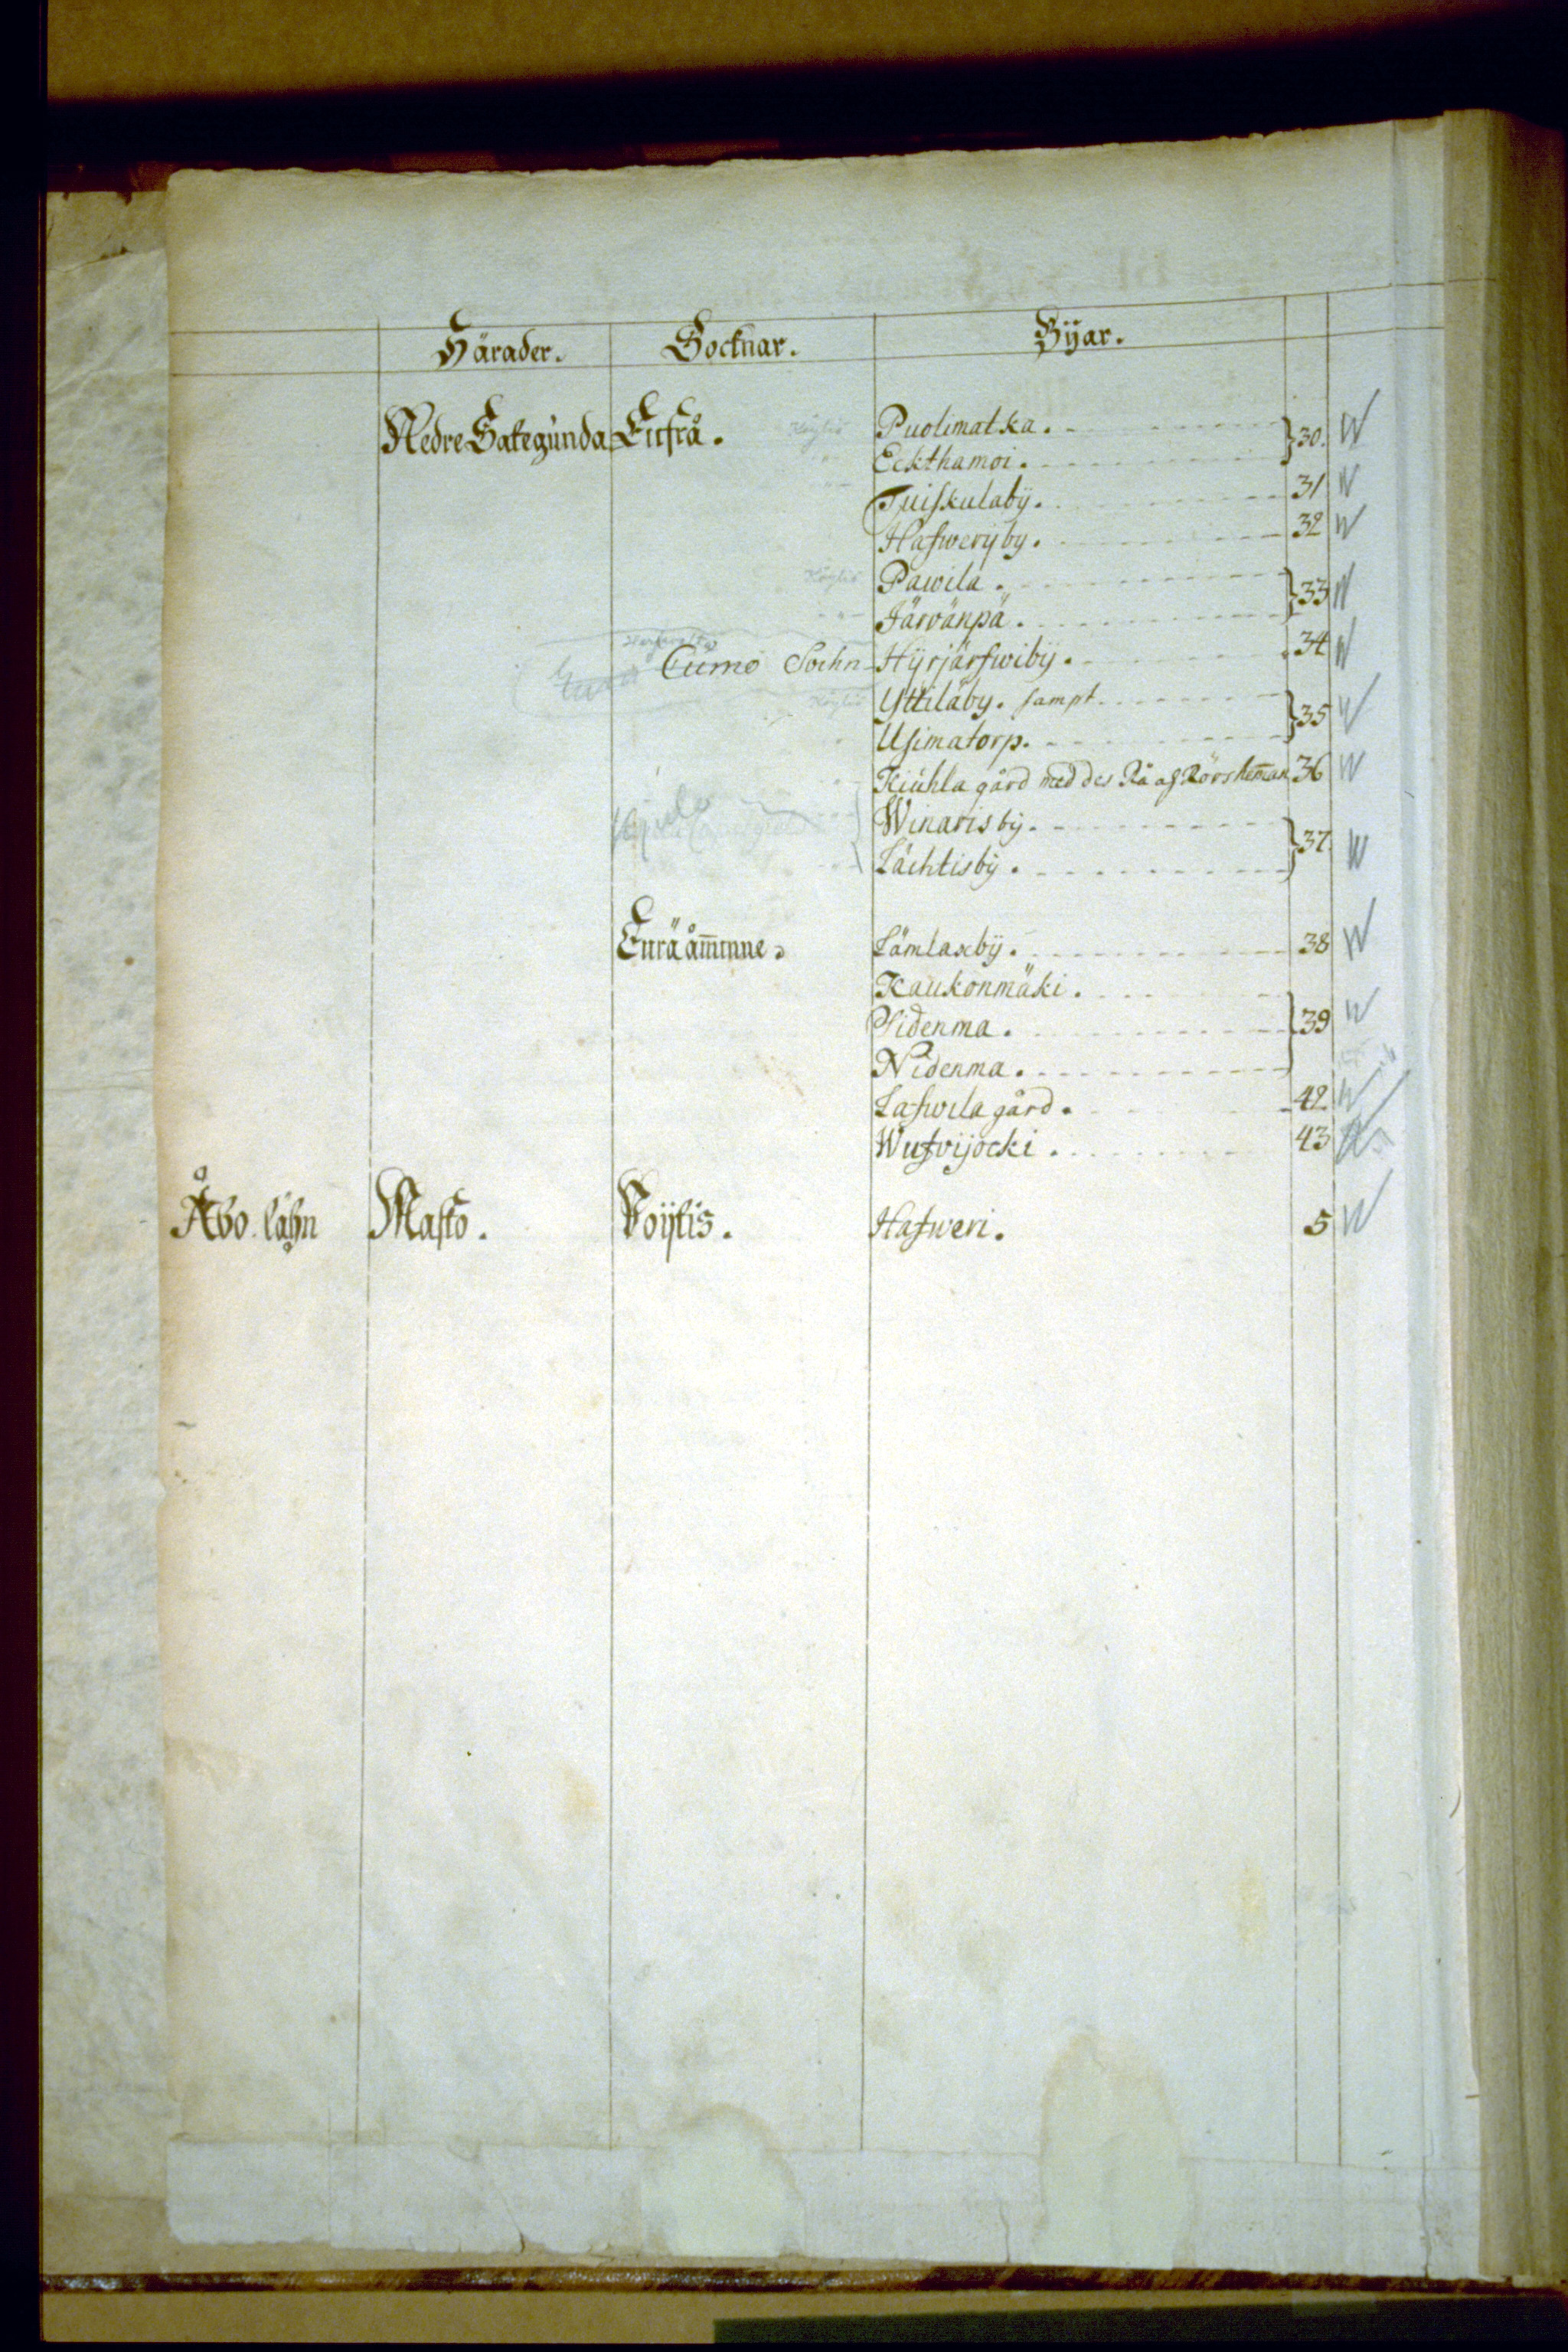 Härader. Socknar. Bÿar.
Nedre Sategunda Eufrå. Köyliö Puolimatka. 30. W
Eckthamoi.
Tuiskulabÿ. 31 W
Hafwerÿby. 32 W
Köyliö Pawila. 33 W
Järvänpä.
Cumo Sochn Hÿrjärfwibÿ. 34 W
Köyliö Yttiläby. sampt 35 W
Usimatorp.
Kiuhla gård med des Rå af Rörs hem̄an 36 W
Winarisbÿ. 37 W
Lächtisbÿ.
Euräåm̄inne. Lämlaxbÿ. 38 W
Kaukonmäki. 39 W
Sidenma.
Nidenma.
Lafwila gård. 42 W
Wufvijocki. 43
Åbo Lähn Masko. Poÿtis. Hafweri. 5 W